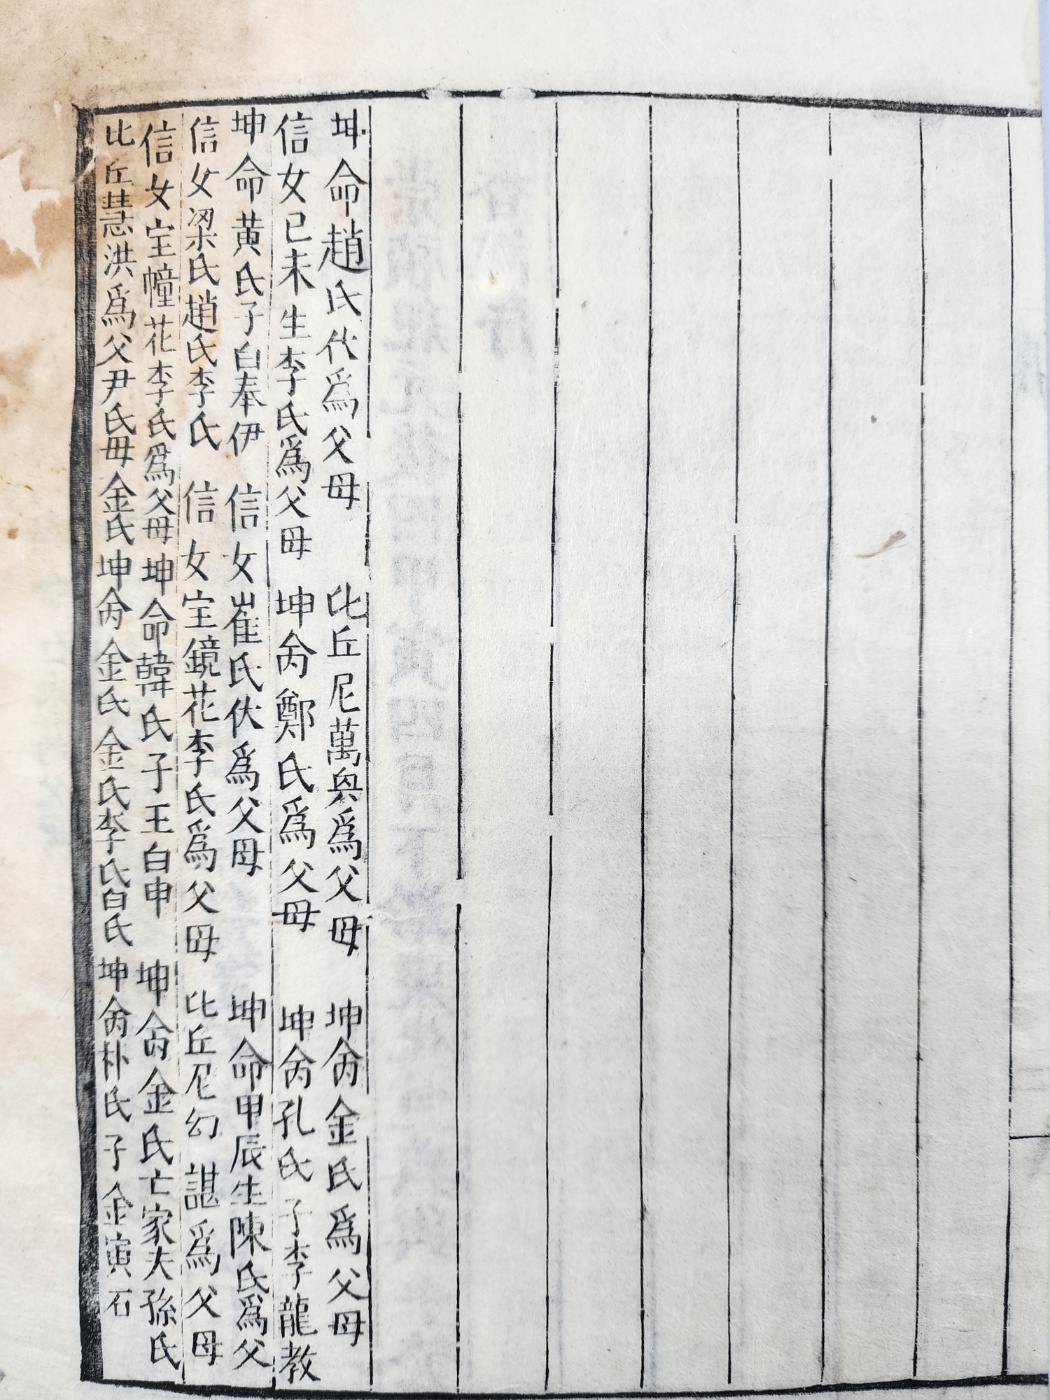 坤命趙氏伏爲父母 比丘尼萬奐爲父母 坤命金氏爲父母
信女己未生李氏爲父母 坤命鄭氏爲父母 坤命孔氏子李龍教
坤命黃氏子白奉伊 信女崔氏伏爲父母 坤命甲辰生陳氏爲父
信女梁氏趙氏李氏 信女宝鏡花李氏爲父母 比丘尼幻諶爲父母
信女宝幢花李氏爲父母 坤命韓氏子王白申 坤命金氏亡家夫孫氏
比丘慧洪爲父尹氏母金氏 坤命金氏金氏李氏白氏 坤命朴氏子金演石